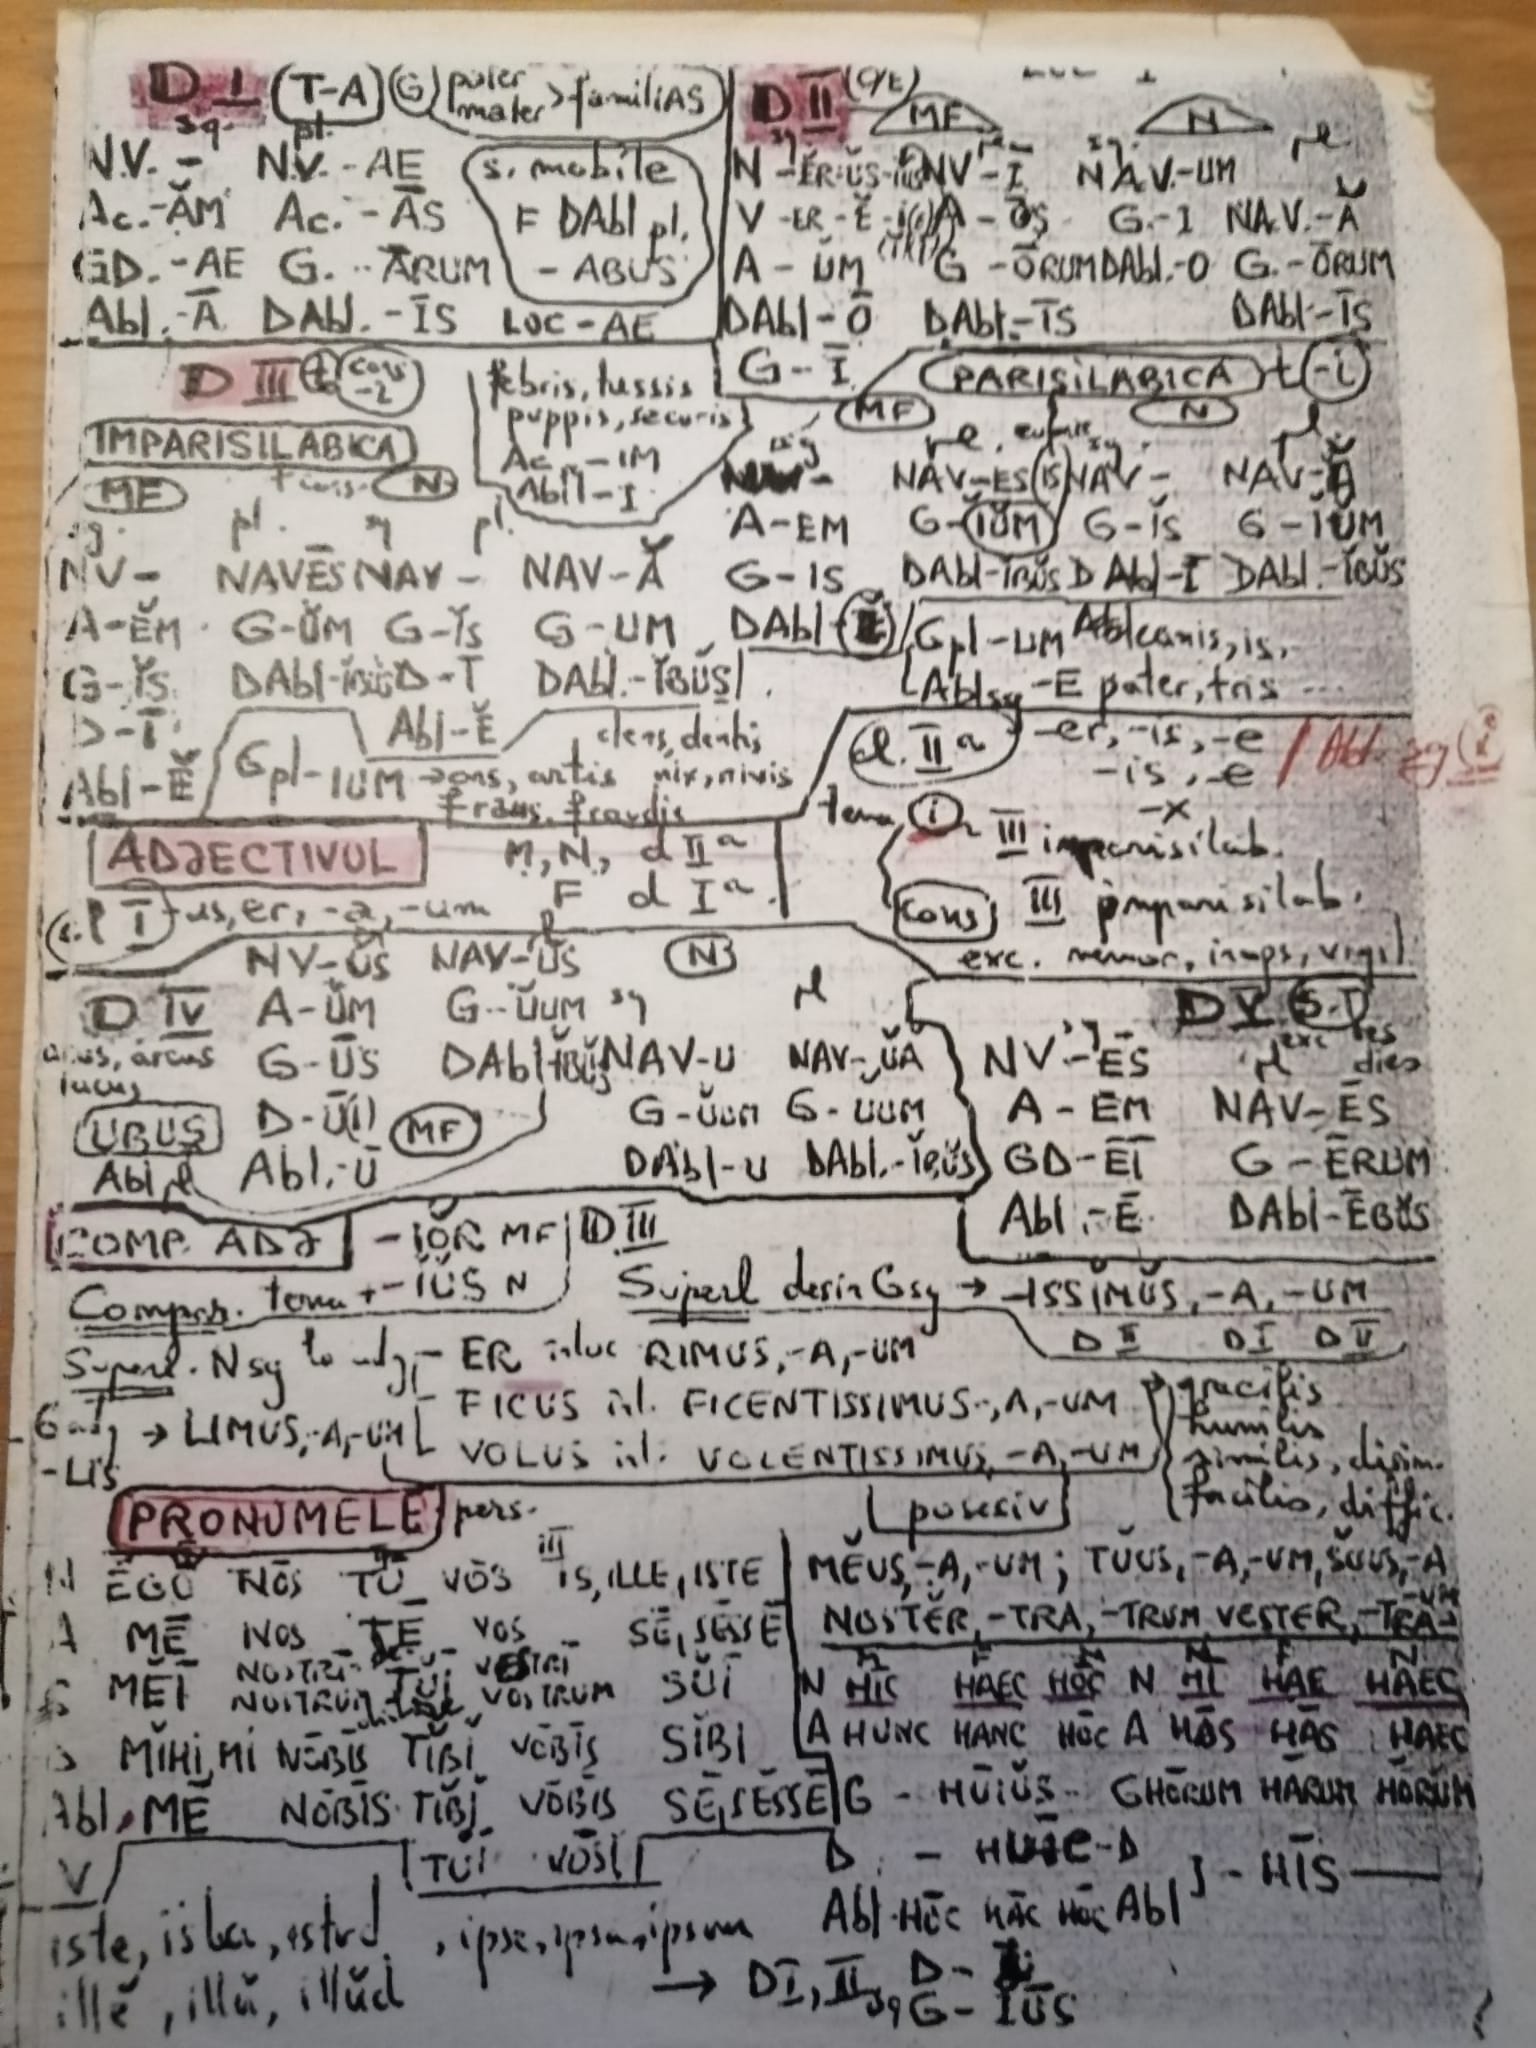 D I (T-A) (G) pater mater > familiAS
sg. pl.
N.V. - N.V. -AE s. mobile
Ac.-ĂM Ac. -ĀS F DAbl pl.
GD.-AE G. -ĀRUM -ABUS
Abl.-Ā DAbl.-ĪS LOC-AE
D II (O/E) MF N
sg pl sg. pl
N -ĔR-ŬS-IUS NV-Ī NAV.-UM
V -ER-Ĕ-I A-ŌS G.-I NA.V.-Ă
A-ŬM G-ŌRUM DAbl.-O G.-ŌRUM
DAbl-Ō DAbl-ĪS DAbl-ĪS
G-Ī
D III t cons
IMPARISILABICA
febris, tussis
puppis, securis
Ac -IM
Abl-I
MF N
sg. pl. sg pl.
NV- NAVĒS NAV- NAV-Ă
A-ĔM G-ŬM G-ĬS G-UM
G-ĬS DAbl-ĭbŭs D-Ī DAbl.-ĬBŬS
D-Ī Abl-Ĕ
Abl-Ĕ
Gpl-IUM → ars, artis dens, dentis nix, nivis
fraus, fraudis
PARISILABICA t -i
MF N
sg pl. sg. pl.
NAV-ES (IS) NAV- NAV-Ă
A-EM G-ĬŬM G-ĬS G-ĬŬM
G-IS DAbl-ĭbŭs DAbl-Ī DAbl.-ĬBŬS
DAbl-Ĕ
Gpl-UM canis, is,
Abl sg -E pater, tris ...
cl. II a -er, -is, -e / Abl sg (i)
-is, -e
-x
tema i III imparisilab.
cons III imparisilab.
exc. memor, inops, vigil
ADJECTIVUL M, N, d II a
F d I a
cl I -us, er, -a, -um
D IV NV-ŬS NAV-ŪS N
A-ŬM G-ŬUM sg pl
arcus G-ŪS DAbl-ĭbŭs NAV-U NAV-ŬA
lacus
UBUS D-ŬI MF G-ŬUM G-UUM
Abl pl Abl.-Ū DAbl-U DAbl.-Ĭbŭs
D V S.T
exc res dies
sg pl
NV-ĒS NAV-ĒS
A-EM
GD-ĒĪ G-ĒRUM
Abl.-Ē DAbl-ĒBŬS
COMP. ADJ -IŎR MF D III
Compar. tema + -IŬS N
Superl desin Gsg → -ISSĬMŬS, -A, -UM
D II D I D II
Superl. Nsg - ER RIMUS, -A, -UM
FICUS FICENTISSIMUS, -A, -UM
VOLUS VOLENTISSIMUS, -A, -UM
-LIS → LIMUS, -A, -UM
gracilis
humilis
similis, disim.
facilis, diffic.
PRONUMELE pers. posesiv
III
N ĔGŎ NŌS TŪ VŌS IS, ILLE, ISTE
A MĒ NOS TĒ VOS SĒ, SĒSSĒ
G MĔĪ NOSTRI TUI VESTRI SŬĪ
NOSTRUM VOSTRUM
D MĬHI, MI NŌBĪS TĬBĬ VŌBĪS SĬBI
Abl. MĒ NŌBĪS TĬBĬ VŌBĪS SĒ, SĒSSĒ
V TUI VŌSI
MĔUS, -A, -UM; TŬUS, -A, -UM, SŬUS, -A
-UM
NOSTĔR, -TRA, -TRUM VESTER, -TRA-
M F N M F N
N HIC HAEC HOC N HI HAE HAEC
A HUNC HANC HŌC A HŌS HĀS HAEC
G - HŪIŬS - G HŌRUM HĀRUM HŌRŬM
D - HUIC - D
Abl HŌC HĀC HŌC Abl } - HĪS
iste, ista, istud, ipse, ipsa, ipsum
illĕ, illă, illŭd
→ DI, II sg D- Ī
G- IŬS